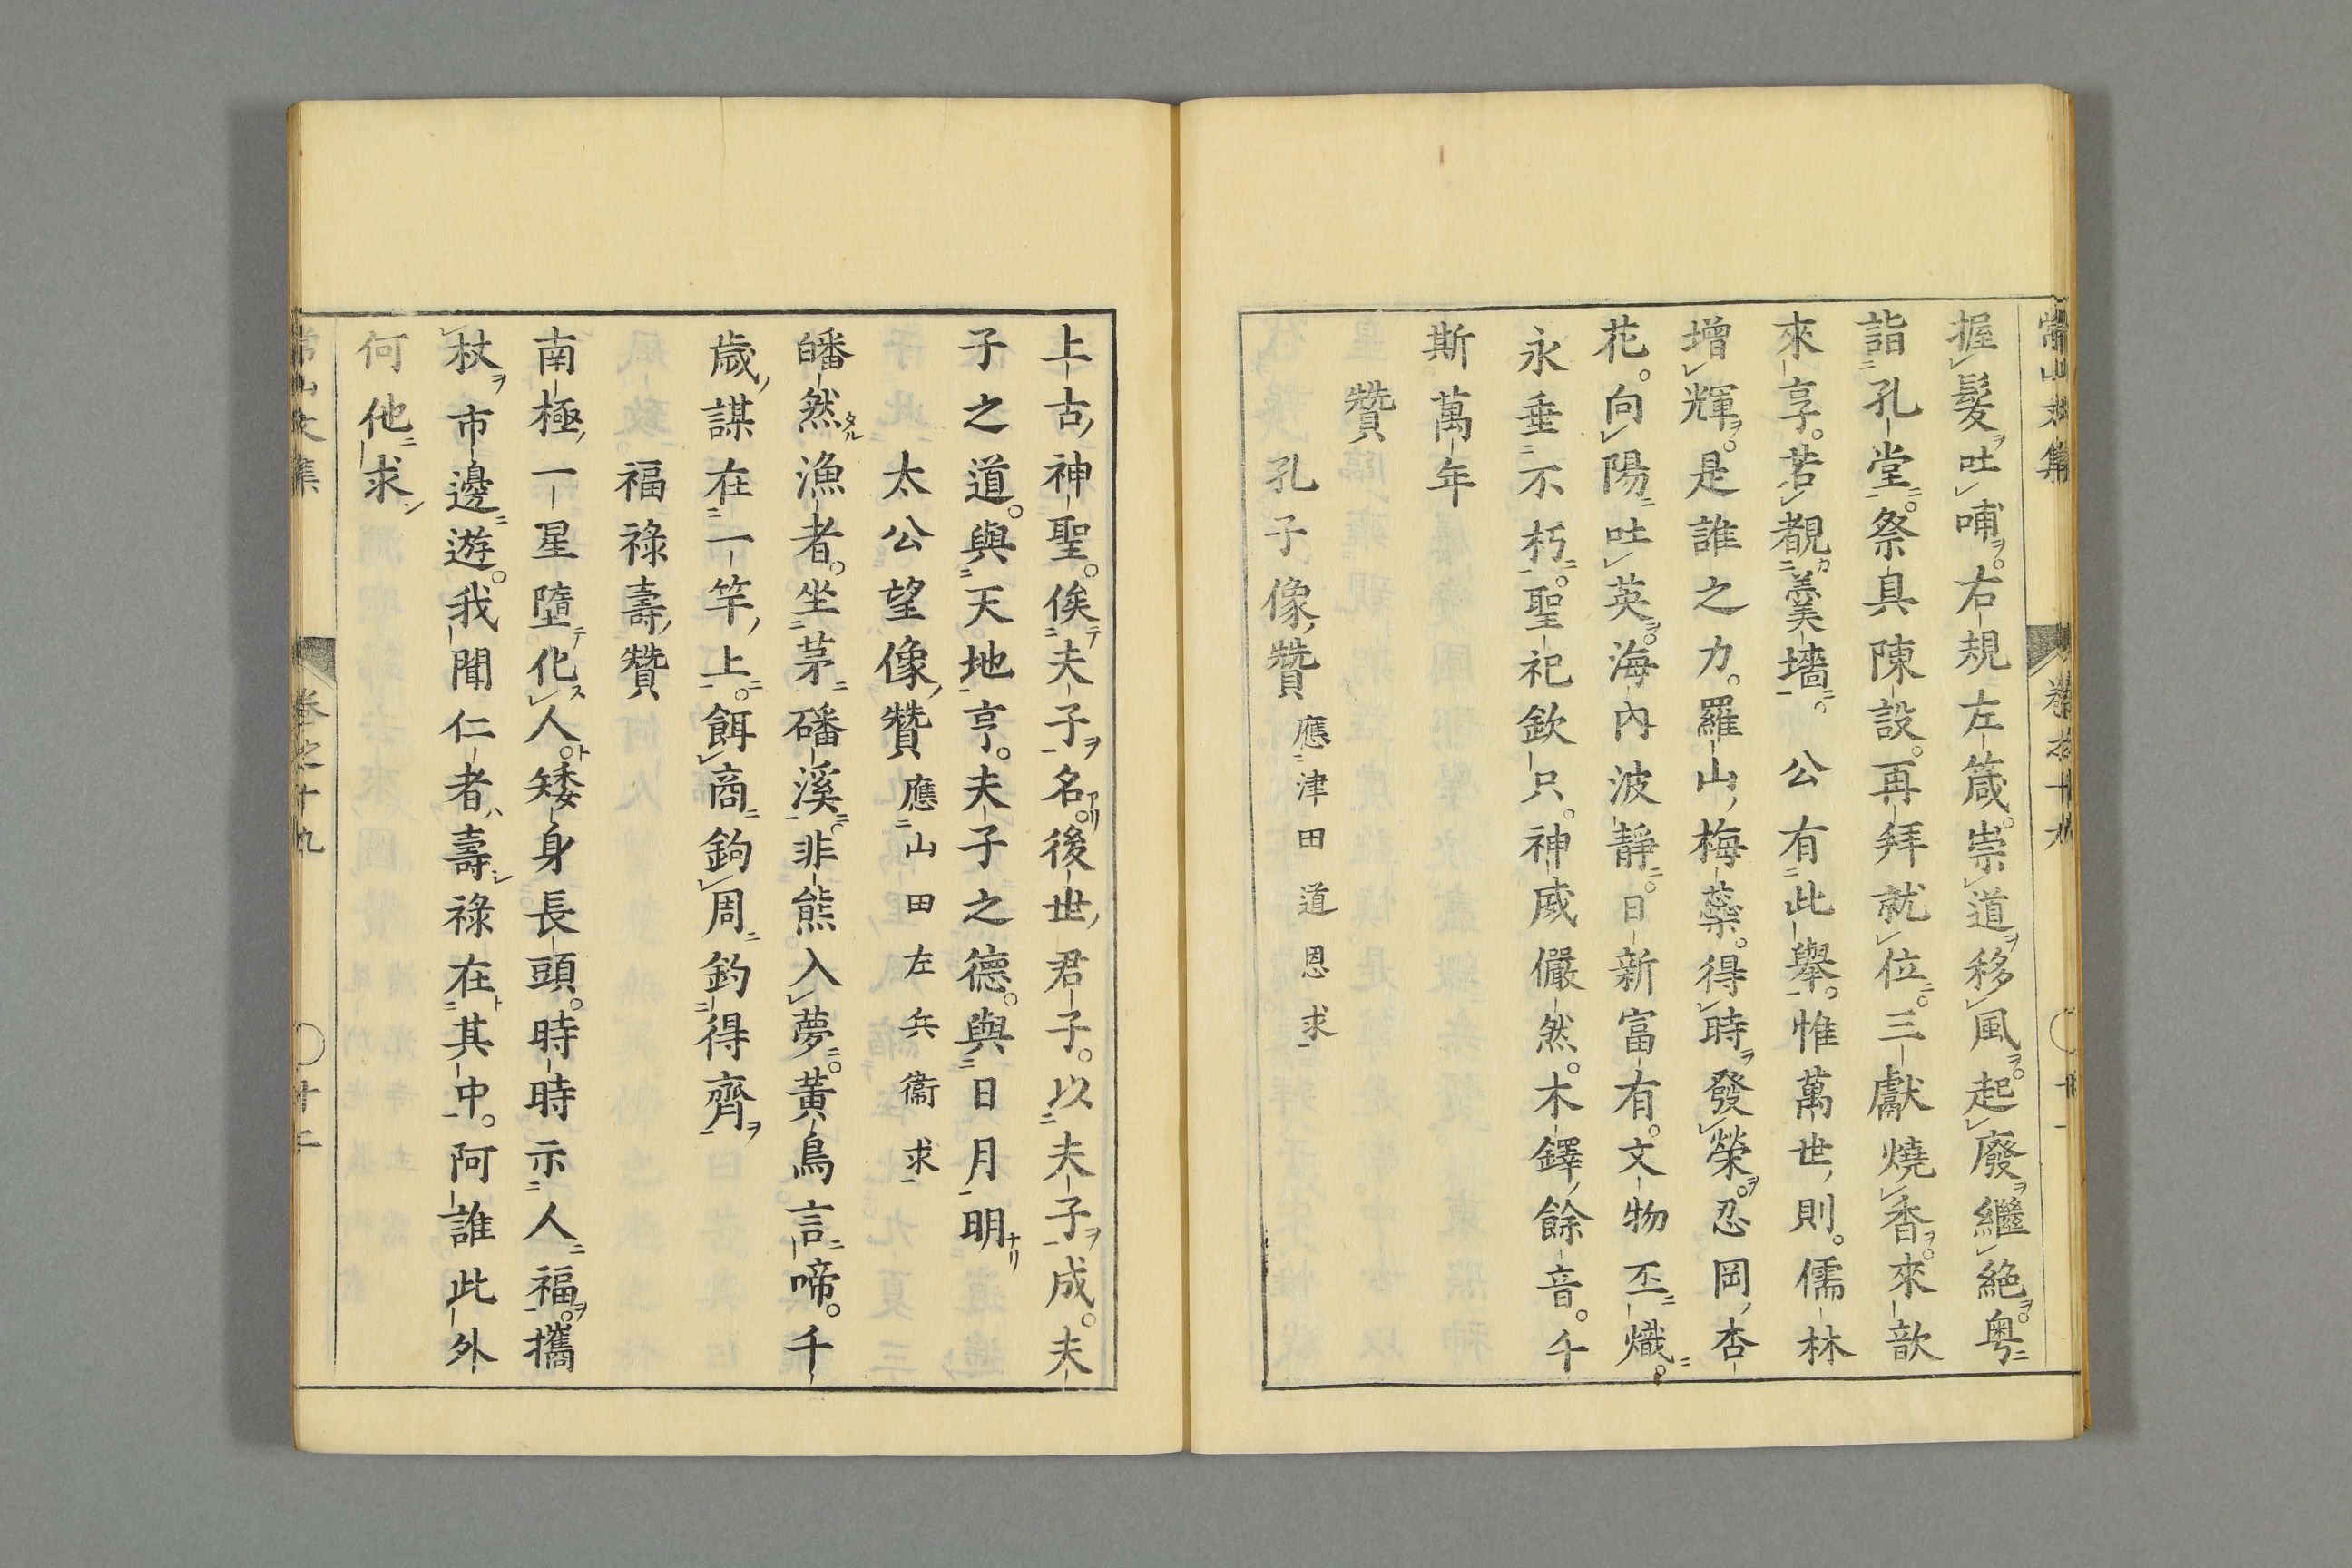 常山文集 卷之十九 〇 廿一
握髮吐哺右規左箴崇道移風起廢繼絕粤
詣孔堂祭具陳設再拜就位三獻燒香來歆
來享若覩羹墻 公有此舉惟萬世則儒林
增輝是誰之力羅山梅蘂得時發榮忍岡杏
花向陽吐英海內波靜日新富有文物丕熾
永垂不朽聖祀欽只神威儼然木鐸餘音千
斯萬年
贊
孔子像贊應津田道恩求
上古神聖俟夫子名後世君子以夫子成夫
子之道與天地亨夫子之德與日月明
太公望像贊應山田左兵衞求
皤然漁者坐茅磻溪非熊入夢黃鳥言啼千
歲謀在一竿上餌商鉤周釣得齊
福祿壽贊
南極一星墮化人矮身長頭時時示人福攜
杖市邊遊我聞仁者壽祿在其中阿誰此外
何他求
常山文集 卷之十九 〇 廿二